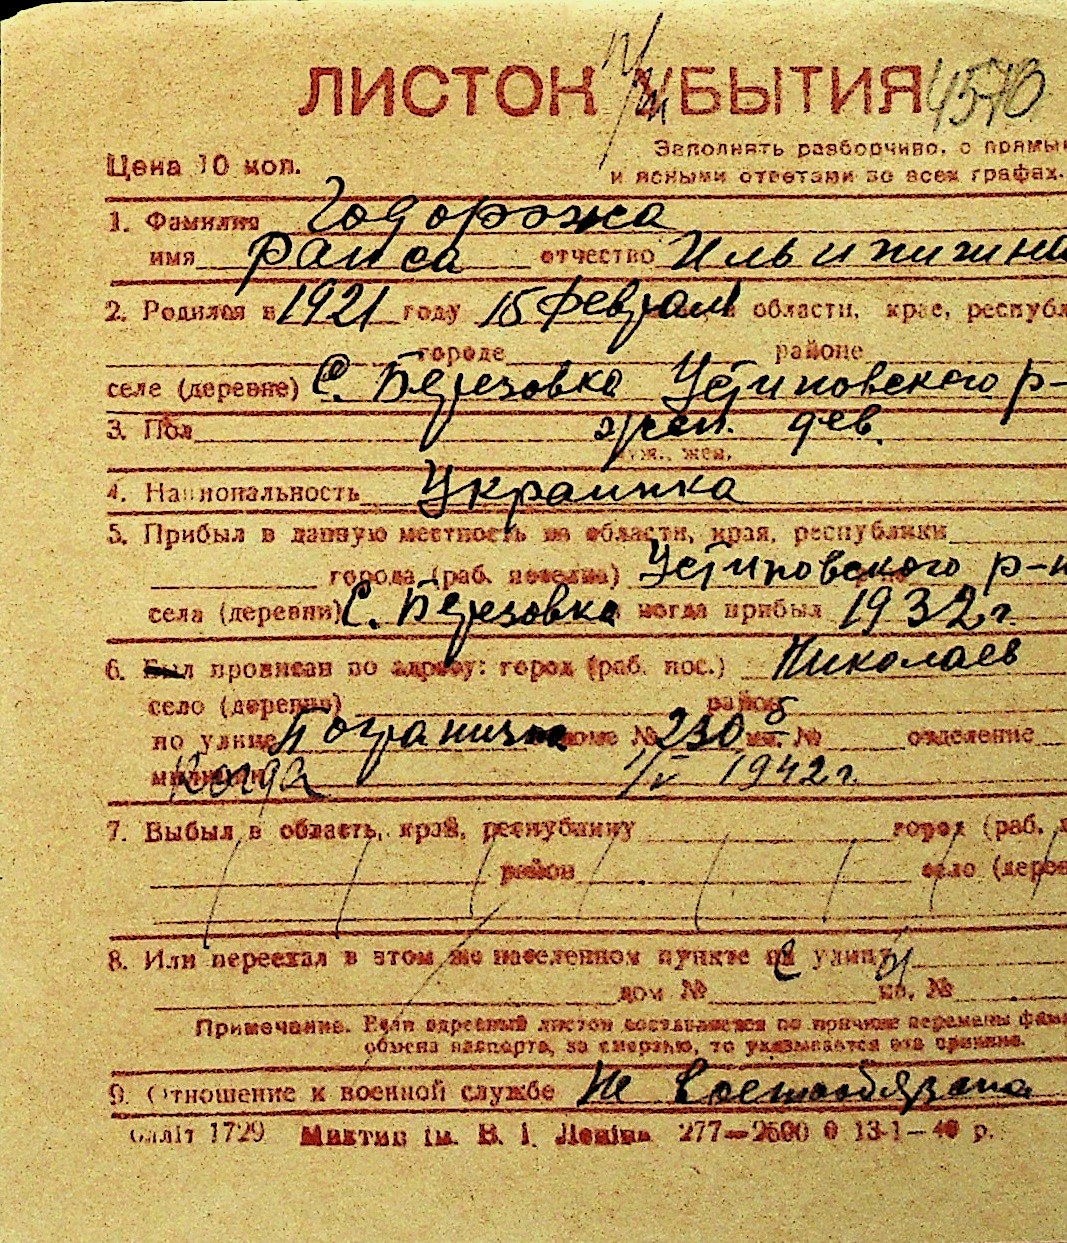 ЛИСТОК УБЫТИЯ 4570
Цена 10 коп.
Заполнять разборчиво, с прямы
и ясными ответами во всех графах.
1. Фамилия Годорожа
имя Раиса отчество
2. Родился в 1921 году 15 феврал области, крае, республ
городе районе
селе (деревне) С. Березовка Устиновского р-
3. Пол жен. дев.
муж., жен.
4. Национальность Украинка
5. Прибыл в данную местность из области, края, республики
города (раб. поселка) Устиновского р-н
села (деревни) С. Березовка когда прибыл 1932 г.
6. Был прописан по адресу: город (раб. пос.) Николаев
село (деревне) район
по улице Погранична доме № 230 б кв. № отделение
милиции Когда 1/V 1942 г.
7. Выбыл в область, край, республику город (раб.
район село (дерев
8. Или переехал в этом же населенном пункте на улицу
дом № кв. №
Примечание. Если адресный листок составляется по причине перемены фам
обмена паспорта, за смертью, то указывается эта причина.
9. Отношение к военной службе Не военнообязана
Обліт 1729 ім. В. І. Леніна 277—2500 0 13-1—40 р.